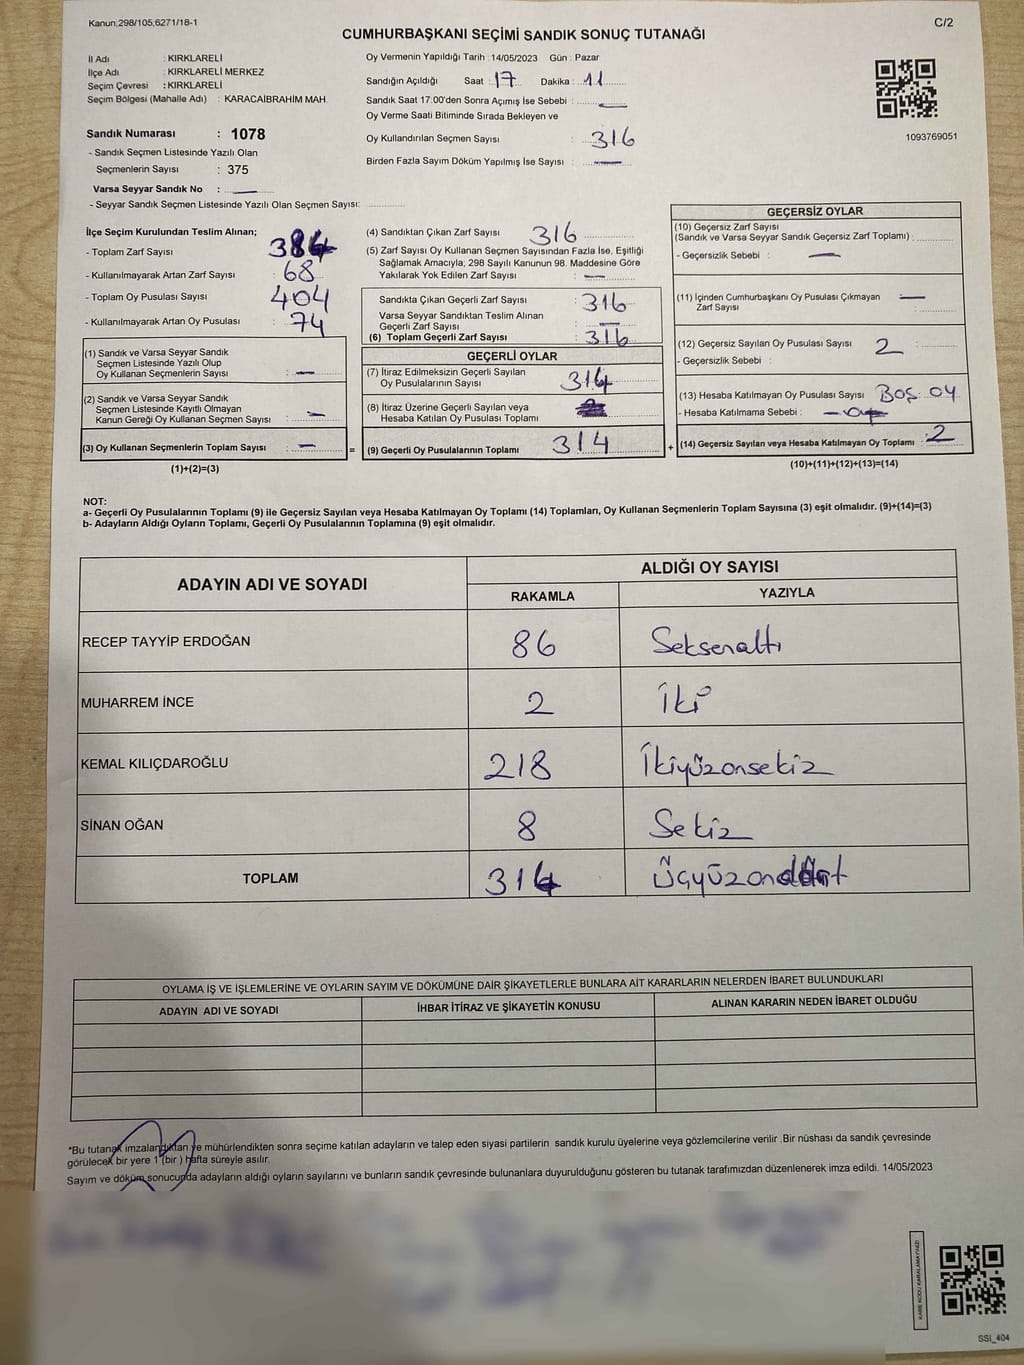 Kanun;298/105,6271/18-1
C/2
CUMHURBAŞKANI SEÇİMİ SANDIK SONUÇ TUTANAĞI
İl Adı : KIRKLARELİ
İlçe Adı : KIRKLARELİ MERKEZ
Seçim Çevresi : KIRKLARELİ
Seçim Bölgesi (Mahalle Adı) : KARACAİBRAHİM MAH.
Oy Vermenin Yapıldığı Tarih : 14/05/2023 Gün : Pazar
Sandığın Açıldığı Saat : 17 Dakika : 11
Sandık Saat 17:00'den Sonra Açımış İse Sebebi : —
Oy Verme Saati Bitiminde Sırada Bekleyen ve
Oy Kullandırılan Seçmen Sayısı : 316
Birden Fazla Sayım Döküm Yapılmış İse Sayısı : —
1093769051
Sandık Numarası : 1078
- Sandık Seçmen Listesinde Yazılı Olan
Seçmenlerin Sayısı : 375
Varsa Seyyar Sandık No : —
- Seyyar Sandık Seçmen Listesinde Yazılı Olan Seçmen Sayısı:
İlçe Seçim Kurulundan Teslim Alınan;
- Toplam Zarf Sayısı 384
- Kullanılmayarak Artan Zarf Sayısı : 68
- Toplam Oy Pusulası Sayısı 404
- Kullanılmayarak Artan Oy Pusulası : 74
(1) Sandık ve Varsa Seyyar Sandık
Seçmen Listesinde Yazılı Olup
Oy Kullanan Seçmenlerin Sayısı : —
(2) Sandık ve Varsa Seyyar Sandık
Seçmen Listesinde Kayıtlı Olmayan
Kanun Gereği Oy Kullanan Seçmen Sayısı : —
(3) Oy Kullanan Seçmenlerin Toplam Sayısı : — =
(1)+(2)=(3)
(4) Sandıktan Çıkan Zarf Sayısı : 316
(5) Zarf Sayısı Oy Kullanan Seçmen Sayısından Fazla İse, Eşitliği
Sağlamak Amacıyla; 298 Sayılı Kanunun 98. Maddesine Göre
Yakılarak Yok Edilen Zarf Sayısı : —
Sandıkta Çıkan Geçerli Zarf Sayısı : 316
Varsa Seyyar Sandıktan Teslim Alınan
Geçerli Zarf Sayısı : —
(6) Toplam Geçerli Zarf Sayısı : 316
GEÇERLİ OYLAR
(7) İtiraz Edilmeksizin Geçerli Sayılan
Oy Pusulalarının Sayısı : 314
(8) İtiraz Üzerine Geçerli Sayılan veya
Hesaba Katılan Oy Pusulası Toplamı :
(9) Geçerli Oy Pusulalarının Toplamı : 314 +
GEÇERSİZ OYLAR
(10) Geçersiz Zarf Sayısı
(Sandık ve Varsa Seyyar Sandık Geçersiz Zarf Toplamı) :
- Geçersizlik Sebebi : —
(11) İçinden Cumhurbaşkanı Oy Pusulası Çıkmayan
Zarf Sayısı : —
(12) Geçersiz Sayılan Oy Pusulası Sayısı : 2
- Geçersizlik Sebebi :
(13) Hesaba Katılmayan Oy Pusulası Sayısı : Boş oy
- Hesaba Katılmama Sebebi :
(14) Geçersiz Sayılan veya Hesaba Katılmayan Oy Toplamı : 2
(10)+(11)+(12)+(13)=(14)
NOT:
a- Geçerli Oy Pusulalarının Toplamı (9) ile Geçersiz Sayılan veya Hesaba Katılmayan Oy Toplamı (14) Toplamları, Oy Kullanan Seçmenlerin Toplam Sayısına (3) eşit olmalıdır. (9)+(14)=(3)
b- Adayların Aldığı Oyların Toplamı, Geçerli Oy Pusulalarının Toplamına (9) eşit olmalıdır.
ADAYIN ADI VE SOYADI
ALDIĞI OY SAYISI
RAKAMLA YAZIYLA
RECEP TAYYİP ERDOĞAN 86 Seksenaltı
MUHARREM İNCE 2 İki
KEMAL KILIÇDAROĞLU 218 İkiyüzonsekiz
SİNAN OĞAN 8 Sekiz
TOPLAM 314 Üçyüzondört
OYLAMA İŞ VE İŞLEMLERİNE VE OYLARIN SAYIM VE DÖKÜMÜNE DAİR ŞİKAYETLERLE BUNLARA AİT KARARLARIN NELERDEN İBARET BULUNDUKLARI
ADAYIN ADI VE SOYADI İHBAR İTİRAZ VE ŞİKAYETİN KONUSU ALINAN KARARIN NEDEN İBARET OLDUĞU
*Bu tutanak imzalandıktan ve mühürlendikten sonra seçime katılan adayların ve talep eden siyasi partilerin sandık kurulu üyelerine veya gözlemcilerine verilir .Bir nüshası da sandık çevresinde
görülecek bir yere 1 (bir ) hafta süreyle asılır.
Sayım ve döküm sonucunda adayların aldığı oyların sayılarını ve bunların sandık çevresinde bulunanlara duyurulduğunu gösteren bu tutanak tarafımızdan düzenlenerek imza edildi. 14/05/2023
KARE KODU KARALAMAYINIZ!
SSI_404